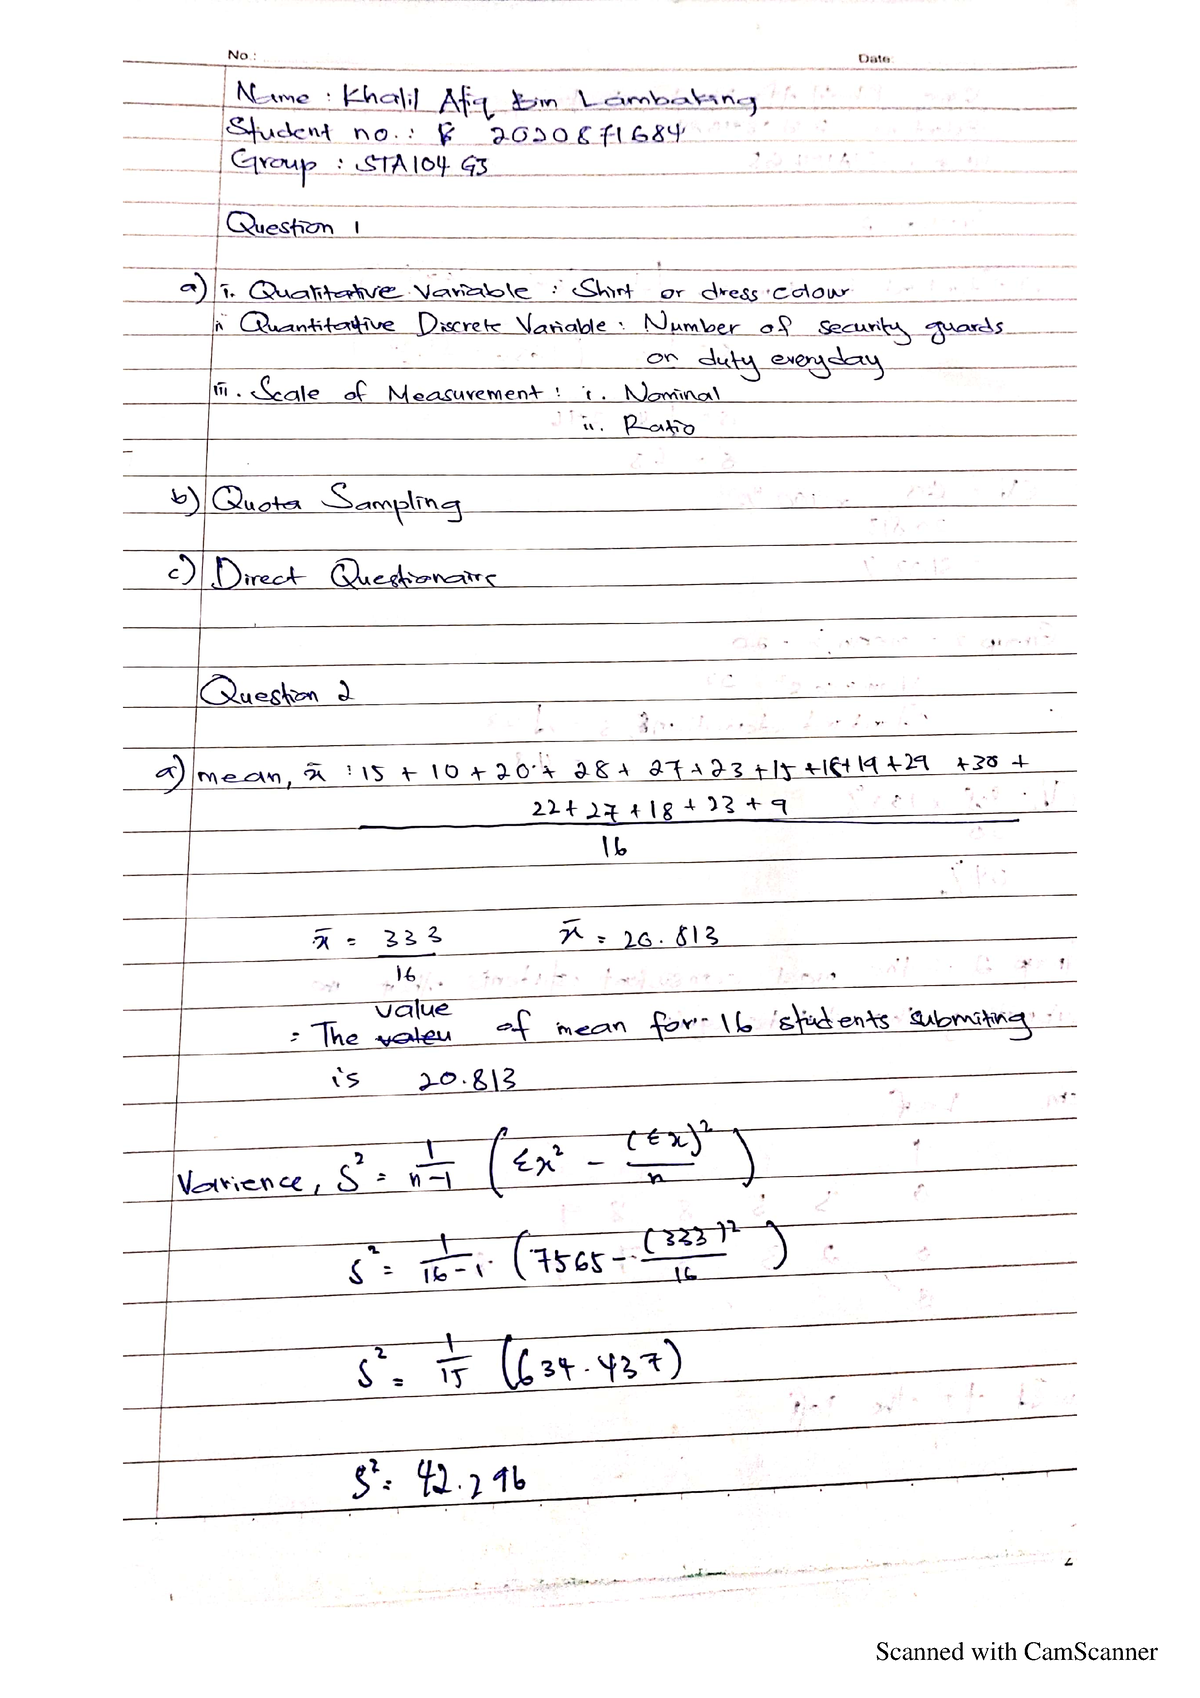 No.: Date:
Name : Khalil Afiq Bin Lambaking
Student no.: 2020871684
Group : STA104 G3
Question 1
a) i. Qualitative Variable : Shirt or dress colour
ii Quantitative Discrete Variable : Number of security guards
on duty everyday
iii. Scale of Measurement : i. Nominal
ii. Ratio
b) Quota Sampling
c) Direct Questionaire
Question 2
a) mean, x̄ : 15 + 10 + 20 + 28 + 27 + 23 + 15 + 18 + 19 + 29 + 30 +
22 + 27 + 18 + 23 + 9
16
x̄ = 333 x̄ = 20.813
16
value
= The of mean for 16 students submiting
is 20.813
Varience, S² = 1/n-1 (Σx² - (Σx)²/n)
S² = 1/16-1 (7565 - (333)²/16)
S² = 1/15 (634.437)
S² = 42.296
Scanned with CamScanner